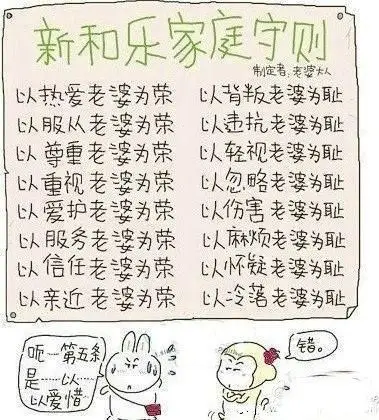 新和乐家庭守则
制定者:老婆大人
以热爱老婆为荣 以背叛老婆为耻
以服从老婆为荣 以违抗老婆为耻
以尊重老婆为荣 以轻视老婆为耻
以重视老婆为荣 以忽略老婆为耻
以爱护老婆为荣 以伤害老婆为耻
以服务老婆为荣 以麻烦老婆为耻
以信任老婆为荣 以怀疑老婆为耻
以亲近老婆为荣 以冷落老婆为耻
呃—第五條
是……以……
以爱惜
错。